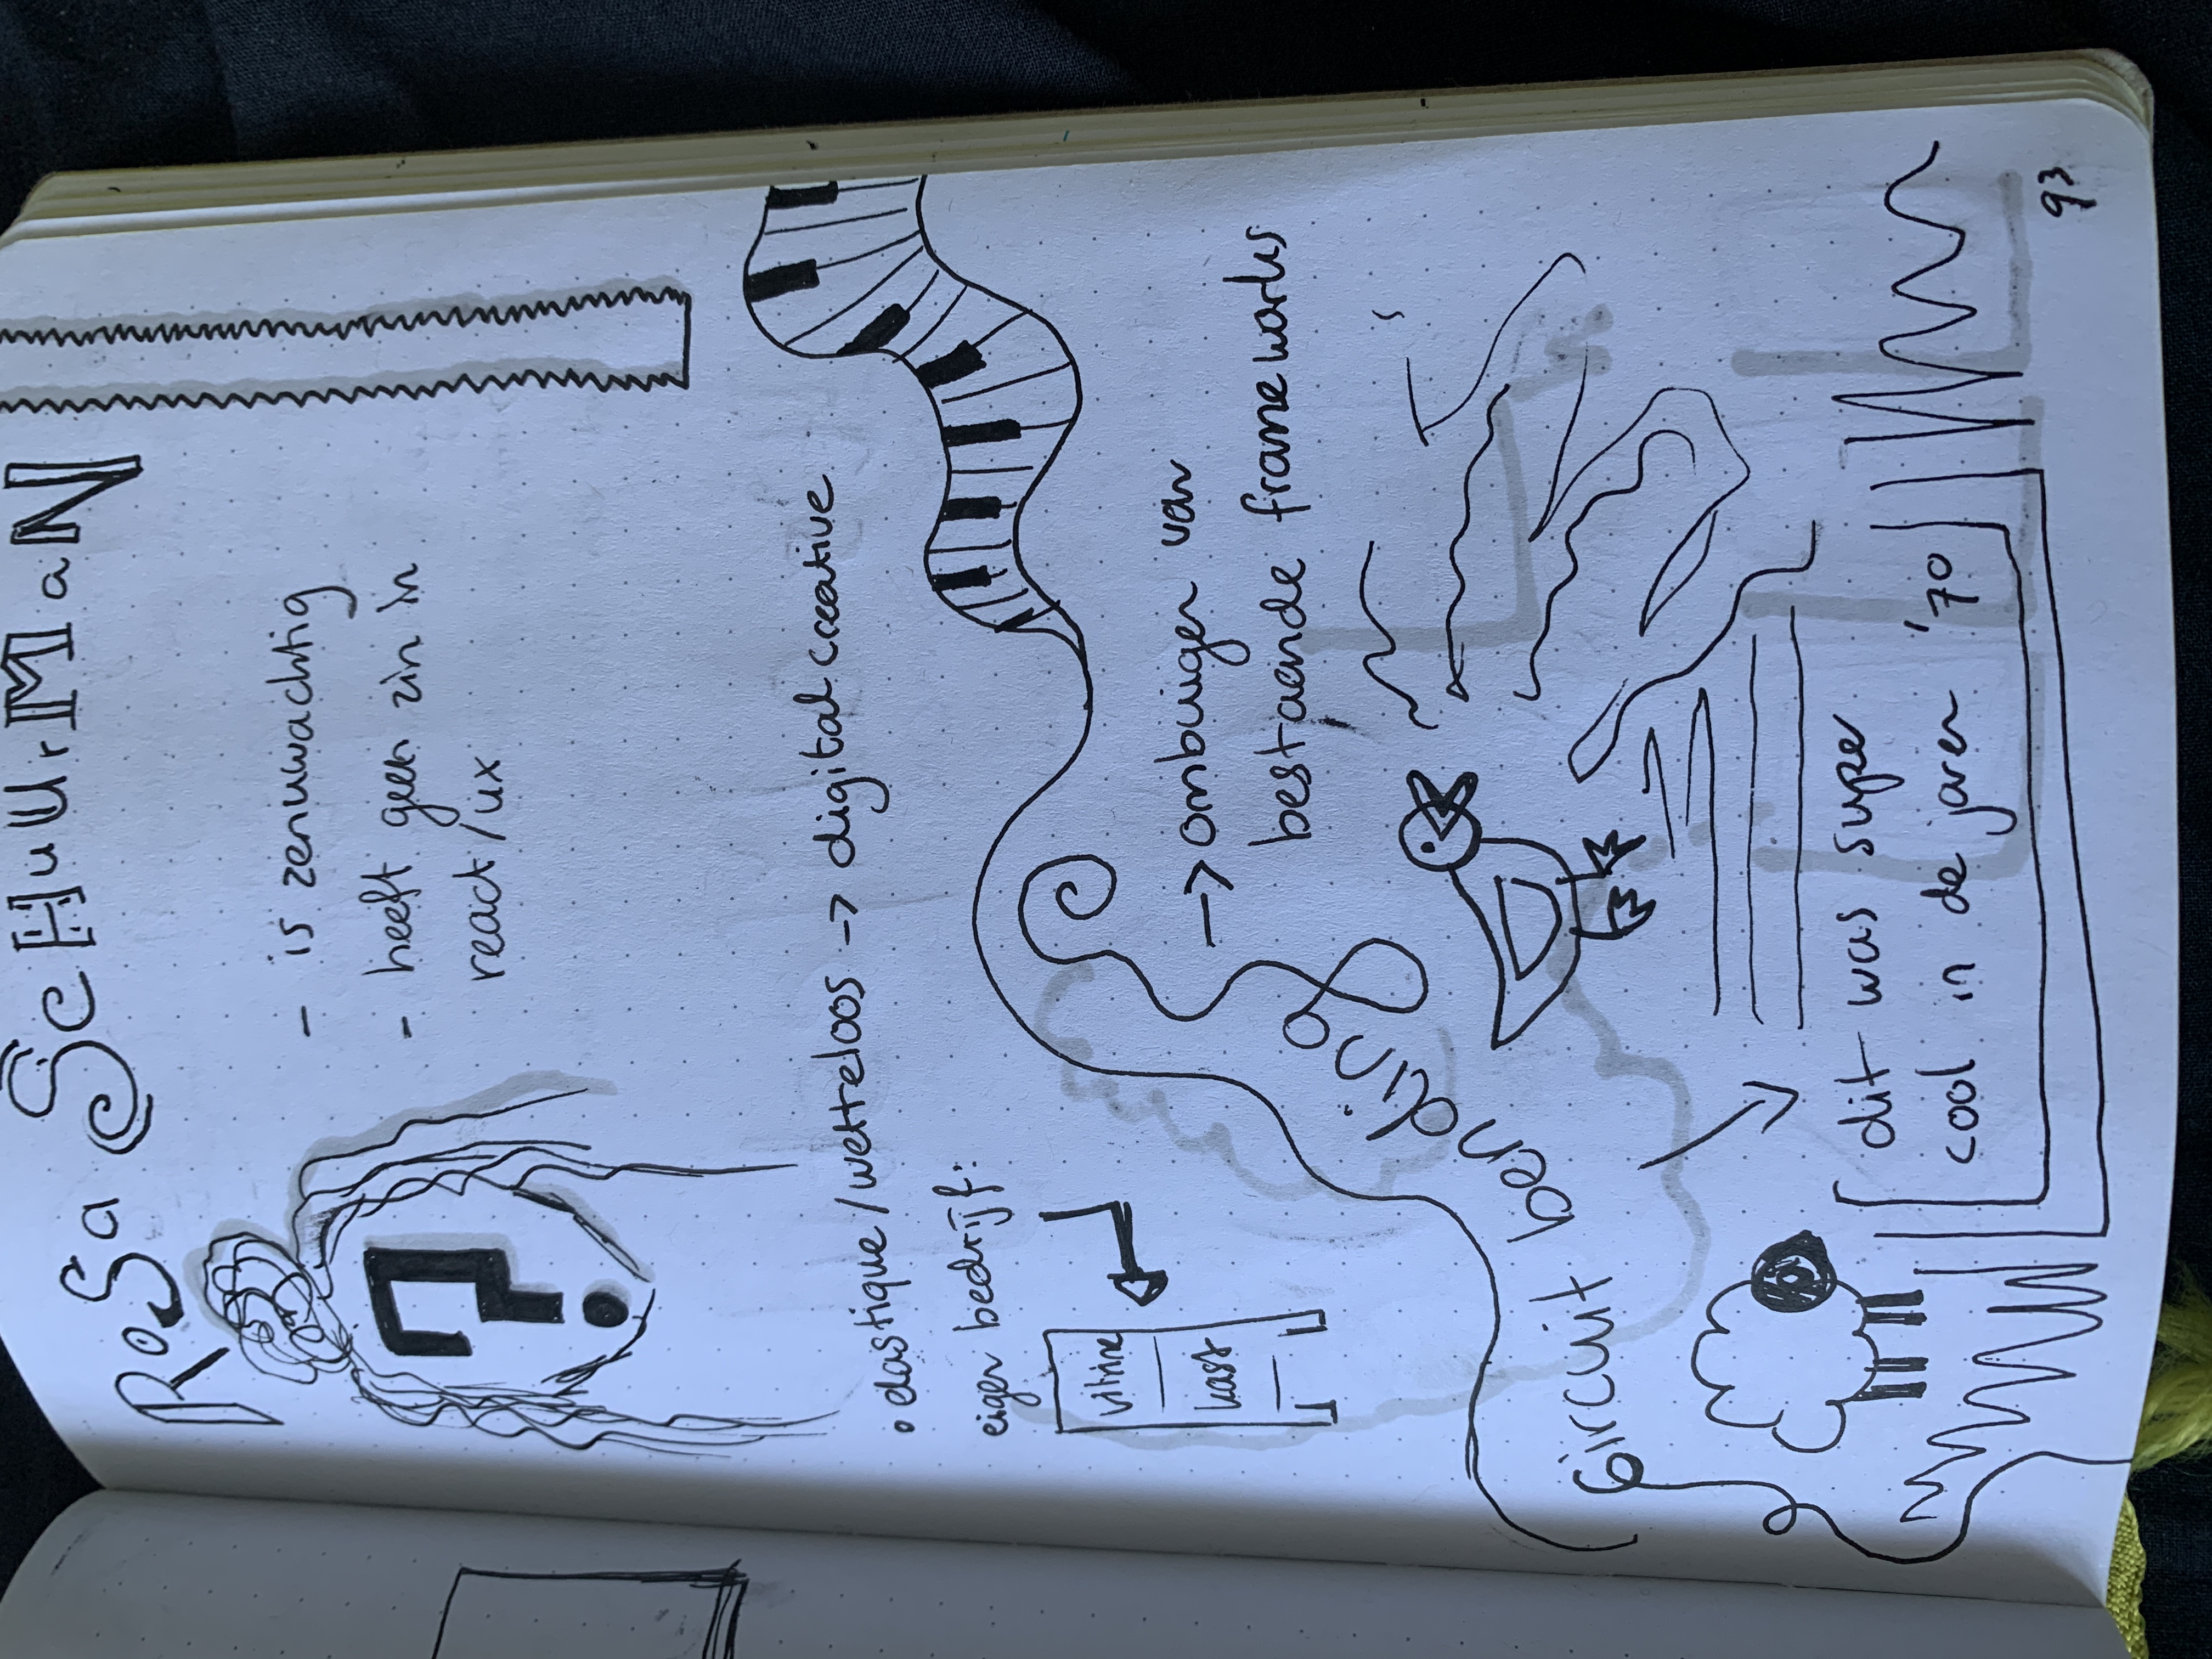 RoSa ScHuUrMaN
- is zenuwachtig
- heeft geen zin in
react/ux
• elastique/wetteloos -> digital creative
eigen bedrijf:
vitrine
kast
-> ombuigen van
bestaande frameworks
Circuit bending
dit was super
cool in de jaren '70
93